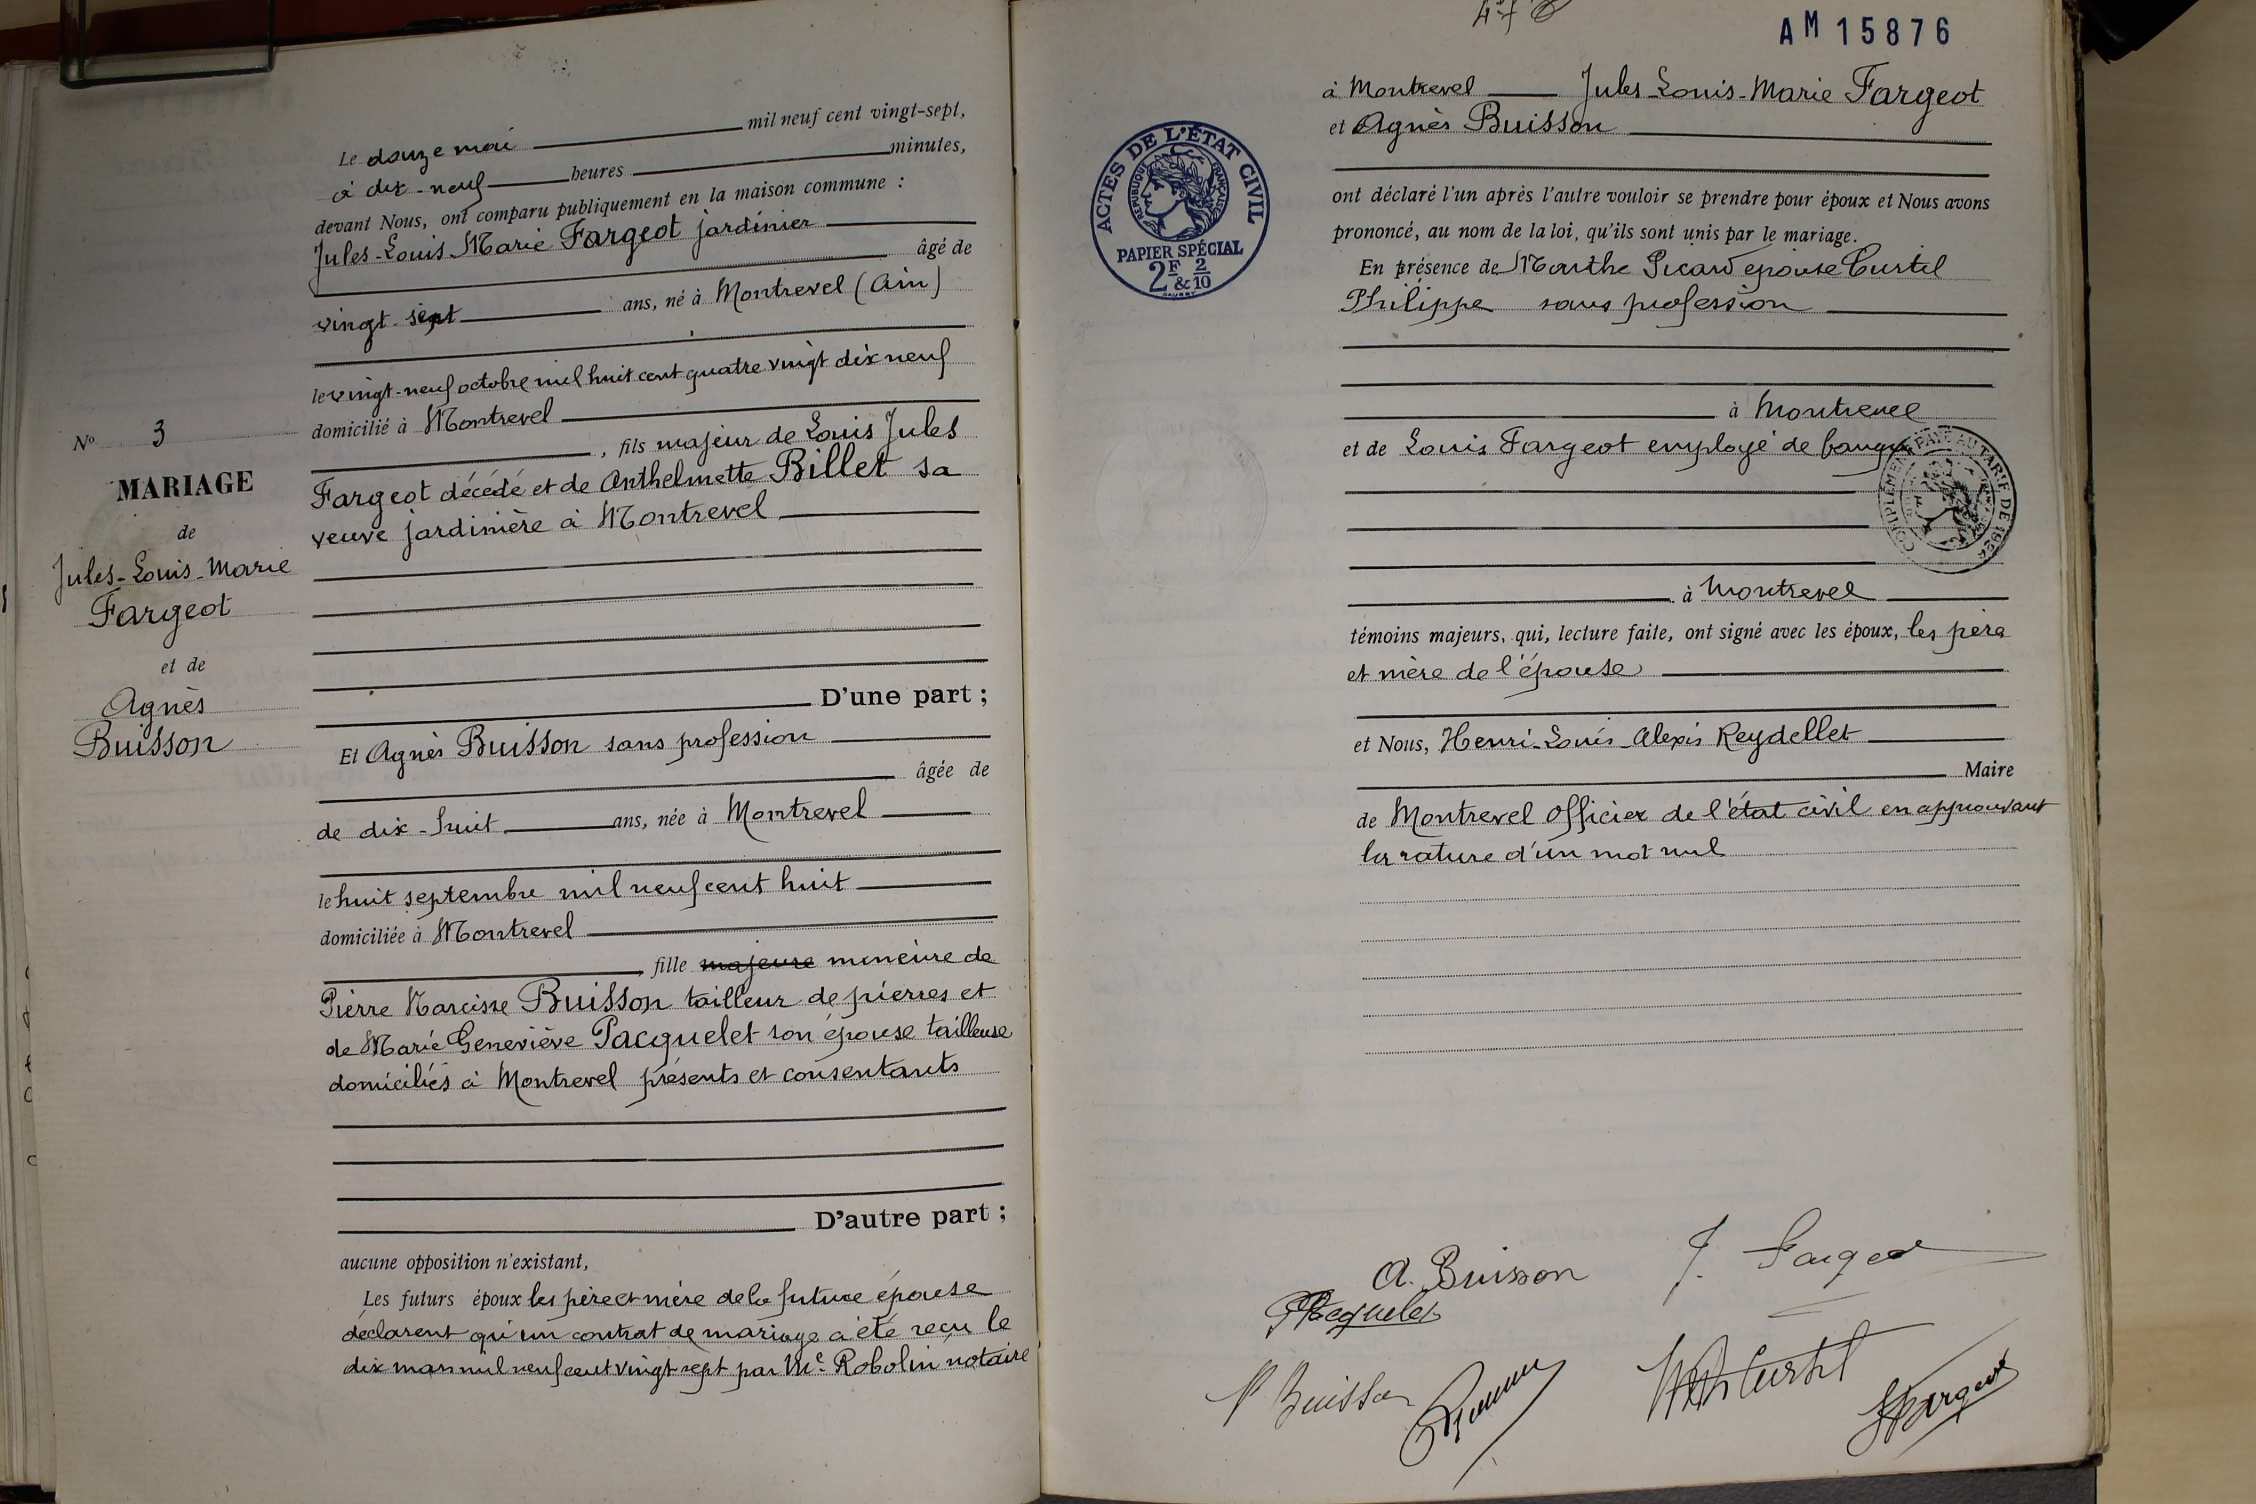 Le douze mai mil neuf cent vingt-sept,
à dix-neuf heures minutes,
devant Nous, ont comparu publiquement en la maison commune :
Jules-Louis-Marie Fargeot jardinier
âgé de
vingt-sept ans, né à Montrevel (Ain)
le vingt-neuf octobre mil huit cent quatre vingt dix neuf
domicilié à Montrevel
, fils majeur de Louis Jules
Fargeot décédé et de Anthelmette Billet sa
veuve jardinière à Montrevel
D'une part ;
Nº 3
MARIAGE
de
Jules-Louis-Marie
Fargeot
et de
Agnès
Buisson
Et Agnès Buisson sans profession
âgée de
de dix-huit ans, née à Montrevel
le huit septembre mil neuf cent huit
domiciliée à Montrevel
, fille majeure mineure de
Pierre Narcisse Buisson tailleur de pierres et
de Marie Geneviève Pacquelet son épouse tailleuse
domiciliés à Montrevel présents et consentants
D'autre part ;
aucune opposition n'existant,
Les futurs époux les père et mère de la future épouse
déclarent qu'un contrat de mariage a été reçu le
dix mai mil neuf cent vingt sept par Me Robolin notaire
AM 15876
à Montrevel Jules-Louis-Marie Fargeot
et Agnès Buisson
ont déclaré l'un après l'autre vouloir se prendre pour époux et Nous avons
prononcé, au nom de la loi, qu'ils sont unis par le mariage.
En présence de Marthe Picard épouse Curtil
Philippe sans profession
à Montrevel
et de Louis Fargeot employé de banque
à Montrevel
témoins majeurs, qui, lecture faite, ont signé avec les époux, les père
et mère de l'épouse
et Nous, Henri-Louis-Alexis Reydellet
Maire
de Montrevel officier de l'état civil en approuvant
la rature d'un mot nul
ACTES DE L'ÉTAT CIVIL
RÉPUBLIQUE FRANÇAISE
PAPIER SPÉCIAL
2F & 2/10
COMPLÉMENT PAYÉ AU TARIF DE
A. Buisson
J. Fargeot
Pacquelet
P Buisson
Curtil
Fargeot